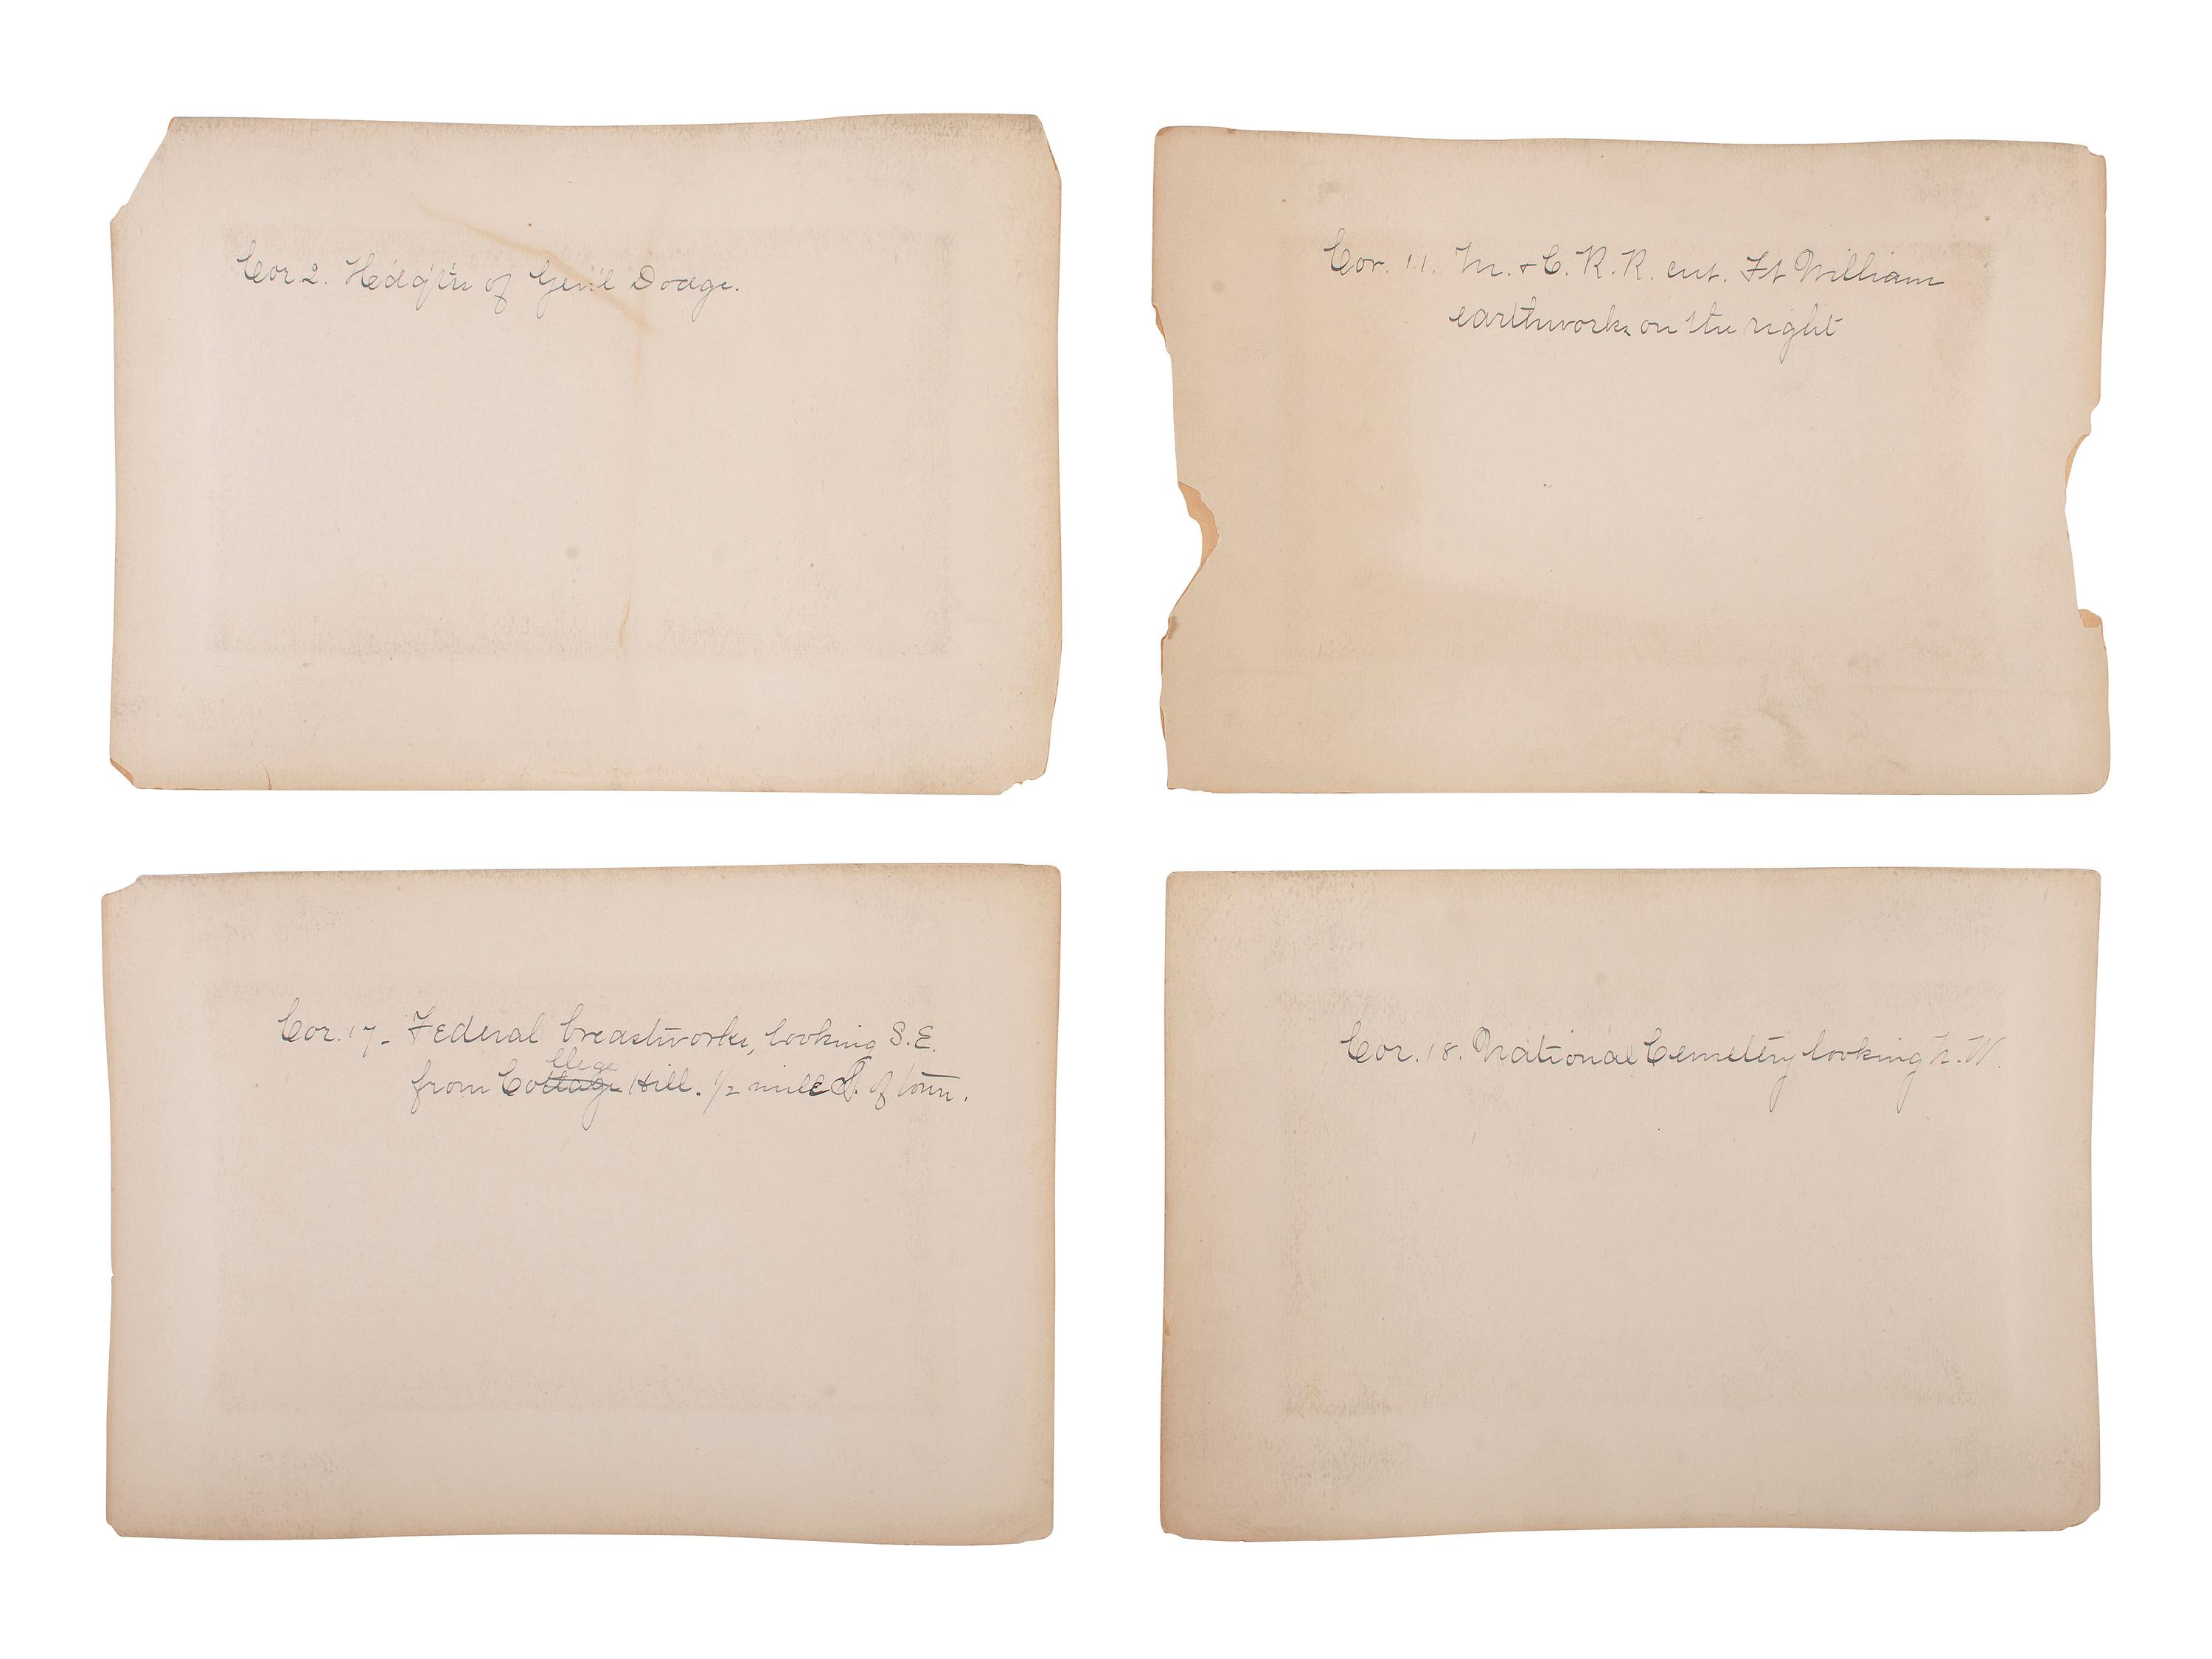 Cor 2. Hedq'trs of Gen'l Dodge.
Cor. 11. M. & C. R. R. cut. Ft William
earthworks on the right
Cor. 17 - Federal breastworks, looking S.E.
llege
from Cottage Hill. 1/2 mile S. of town.
Cor. 18. National Cemetery looking N. W.